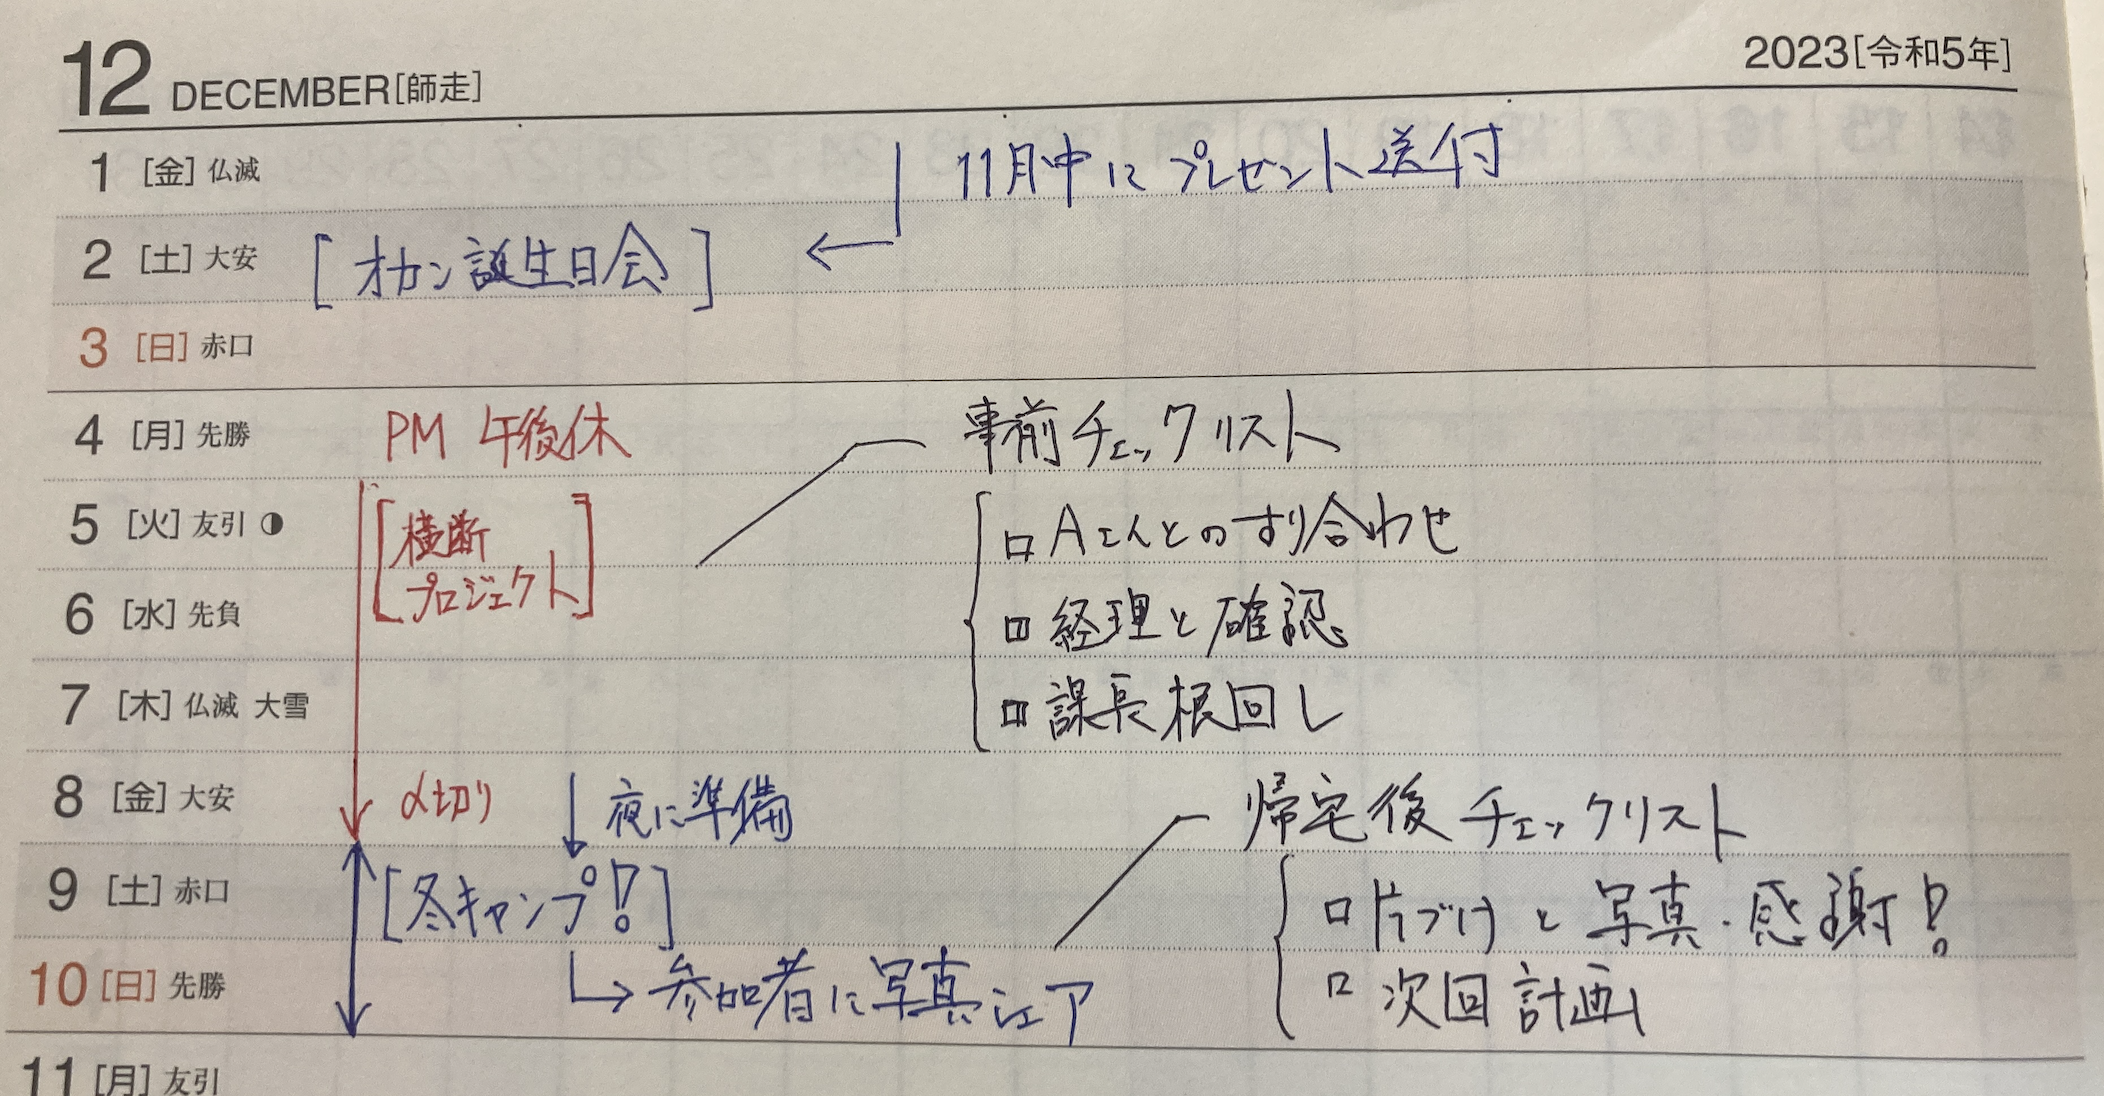 12 DECEMBER[師走] 2023[令和5年]
1 [金] 仏滅 11月中にプレゼント送付
2 [土] 大安 [オカン誕生日会] ←
3 [日] 赤口
4 [月] 先勝 PM 午後休 事前チェックリスト
5 [火] 友引 ◑ [横断 □Aさんとのすり合わせ
6 [水] 先負 プロジェクト] □経理と確認
7 [木] 仏滅 大雪 □課長根回し
8 [金] 大安 〆切り ↓夜に準備 帰宅後チェックリスト
9 [土] 赤口 [冬キャンプ!] □片づけと写真・感謝!
10 [日] 先勝 →参加者に写真シェア □次回計画
11 [月] 友引